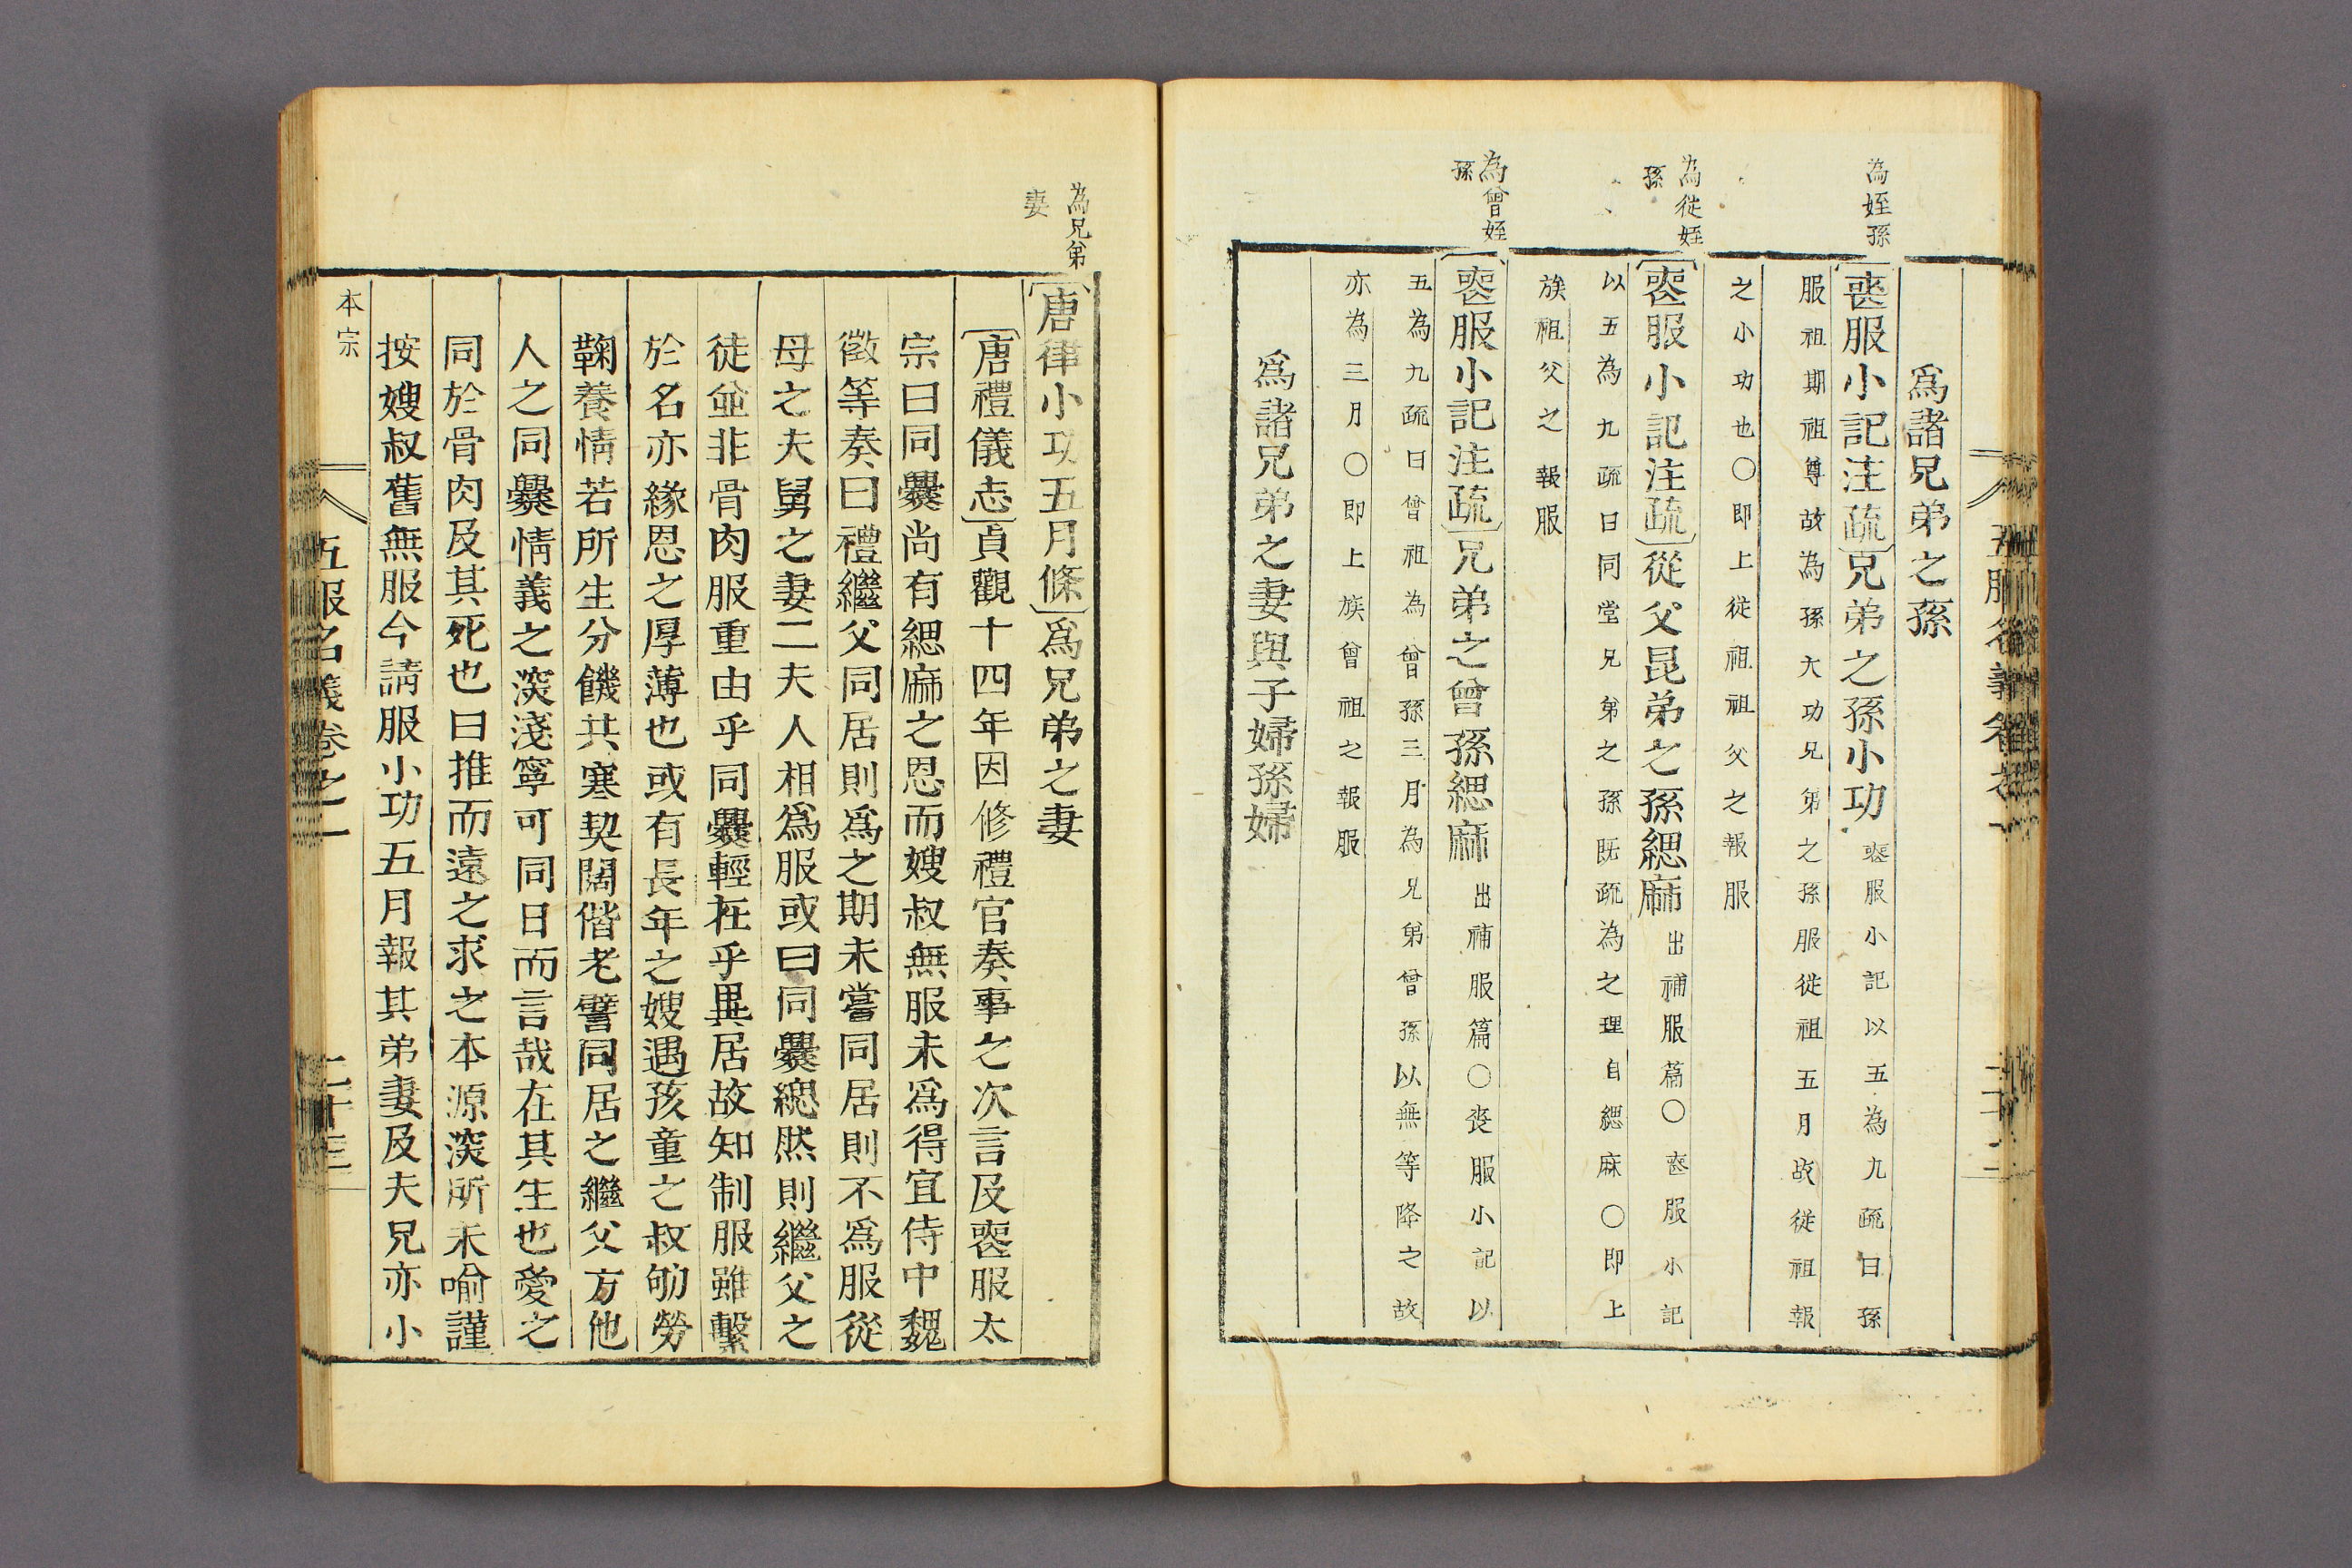 為諸兄弟之孫
為姪孫
喪服小記注疏兄弟之孫小功喪服小記以五為九疏曰孫
服祖期祖尊故為孫大功兄弟之孫服從祖五月故從祖報
之小功也〇即上從祖祖父之報服
為從姪
孫
喪服小記注疏從父昆弟之孫緦麻出補服篇〇喪服小記
以五為九疏曰同堂兄弟之孫既疏為之理自緦麻〇即上
族祖父之報服
為曾姪
孫
喪服小記注疏兄弟之曾孫緦麻出補服篇〇喪服小記以
五為九疏曰曾祖為曾孫三月為兄弟曾孫以無等降之故
亦為三月〇即上族曾祖之報服
為諸兄弟之妻與子婦孫婦
為兄弟
妻
唐律小功五月條為兄弟之妻
唐禮儀志貞觀十四年因修禮官奏事之次言及喪服太
宗曰同爨尚有緦麻之恩而嫂叔無服未為得宜侍中魏
徵等奏曰禮繼父同居則為之期未嘗同居則不為服從
母之夫舅之妻二夫人相為服或曰同爨緦然則繼父之
徒並非骨肉服重由乎同爨輕在乎異居故知制服雖繫
於名亦緣恩之厚薄也或有長年之嫂遇孩童之叔劬勞
鞠養情若所生分饑共寒契闊偕老譬同居之繼父方他
人之同爨情義之深淺寧可同日而言哉在其生也愛之
同於骨肉及其死也曰推而遠之求之本源深所未喻謹
按嫂叔舊無服今請服小功五月報其弟妻及夫兄亦小
本宗
五服名義卷之一
二十三